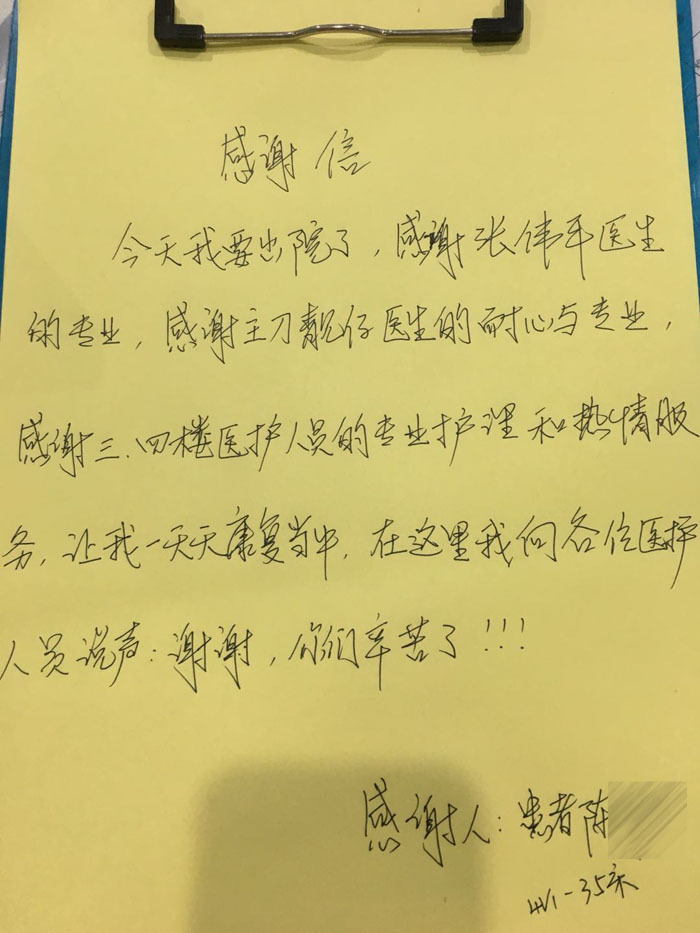 感谢信
今天我要出院了，感谢张伟平医生
的专业，感谢主刀靓仔医生的耐心与专业，
感谢三、四楼医护人员的专业护理和热情服
务，让我一天天康复当中，在这里我向各位医护
人员说声：谢谢，你们辛苦了！！！
感谢人：患者陈
35床